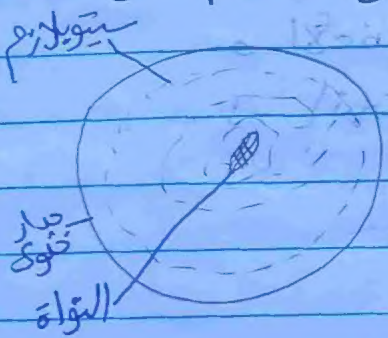 سيتوبلازم
جدار
خلوي
النواة